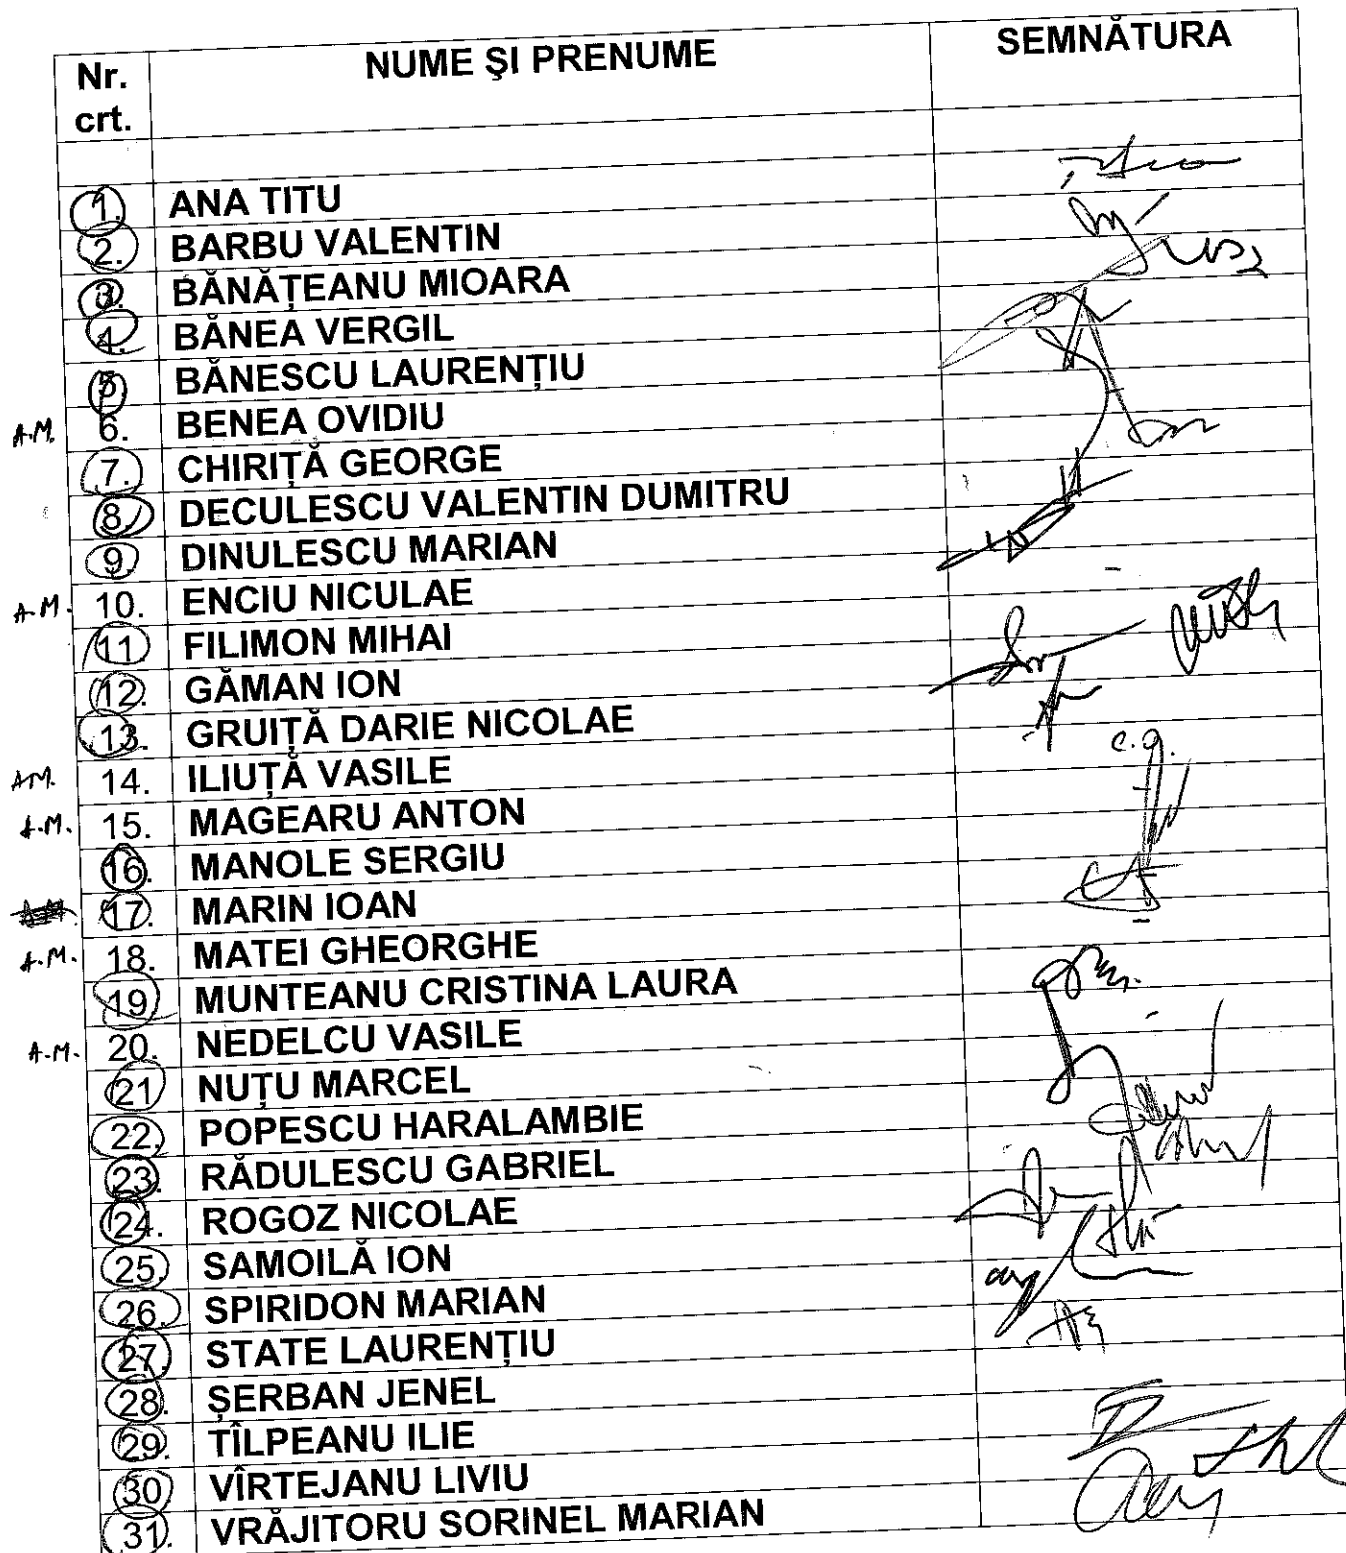 Nr. crt. NUME ŞI PRENUME SEMNĂTURA
1. ANA TITU
2. BARBU VALENTIN
3. BĂNĂŢEANU MIOARA
4. BĂNEA VERGIL
5. BĂNESCU LAURENŢIU
A.M. 6. BENEA OVIDIU
7. CHIRIŢĂ GEORGE
8. DECULESCU VALENTIN DUMITRU
9. DINULESCU MARIAN
A.M. 10. ENCIU NICULAE
11. FILIMON MIHAI
12. GĂMAN ION
13. GRUIŢĂ DARIE NICOLAE
A.M. 14. ILIUŢĂ VASILE c.g.
A.M. 15. MAGEARU ANTON
16. MANOLE SERGIU
17. MARIN IOAN
A.M. 18. MATEI GHEORGHE
19. MUNTEANU CRISTINA LAURA
A.M. 20. NEDELCU VASILE
21 NUŢU MARCEL
22. POPESCU HARALAMBIE
23. RĂDULESCU GABRIEL
24. ROGOZ NICOLAE
25. SAMOILĂ ION
26. SPIRIDON MARIAN
27. STATE LAURENŢIU
28. ŞERBAN JENEL
29. TÎLPEANU ILIE
30. VÎRTEJANU LIVIU
31. VRĂJITORU SORINEL MARIAN